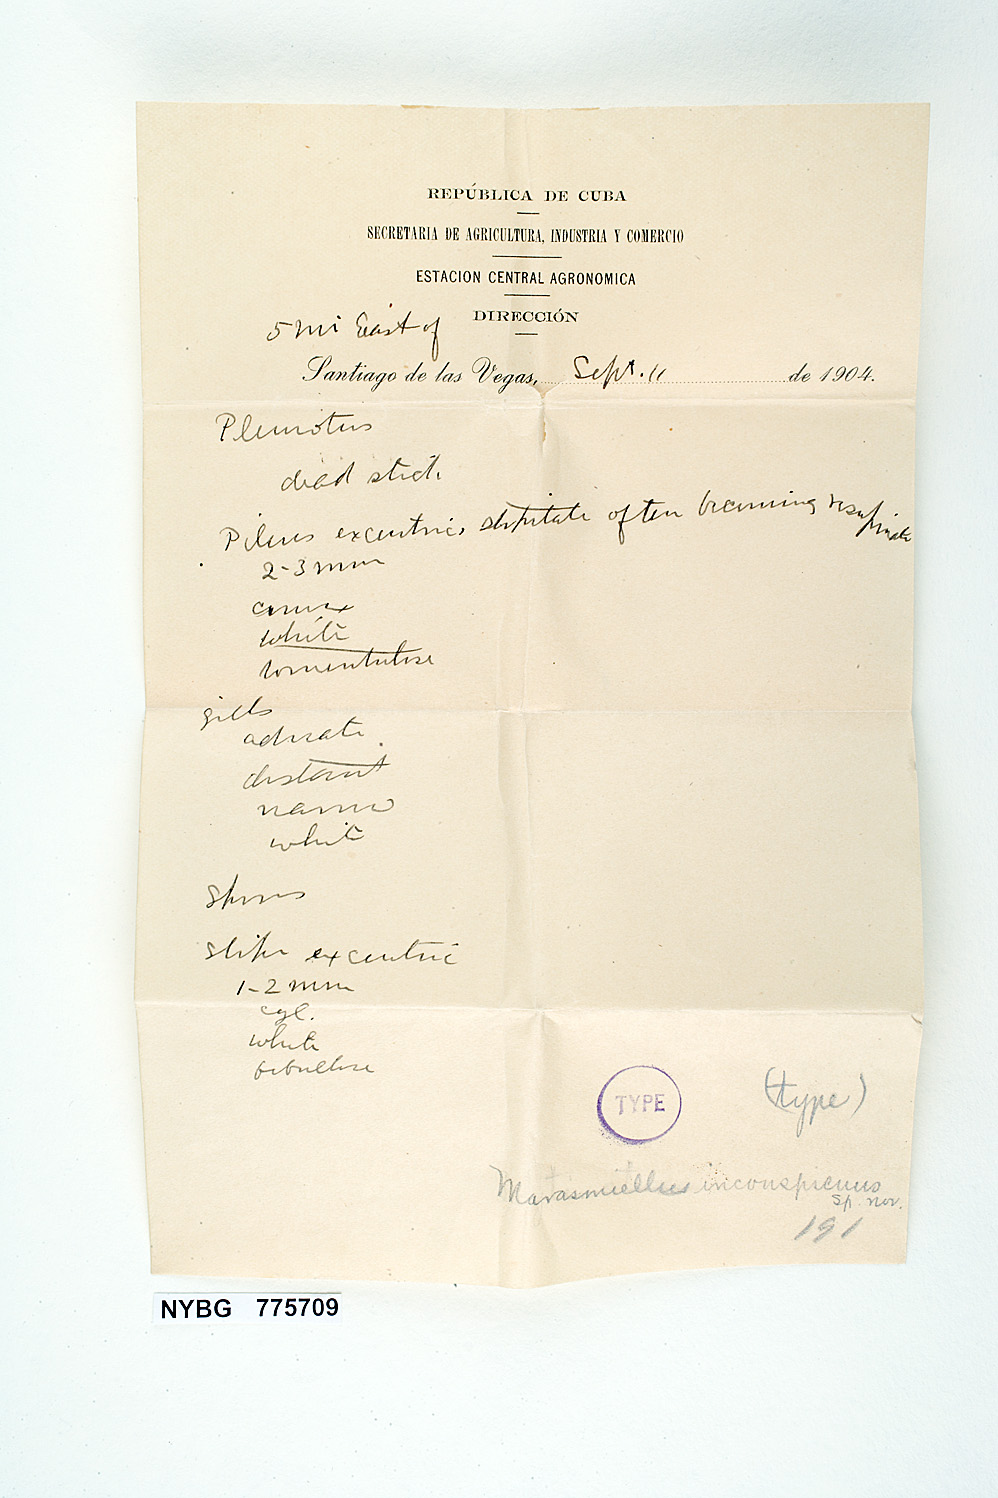 REPÚBLICA DE CUBA
SECRETARIA DE AGRICULTURA, INDUSTRIA Y COMERCIO
ESTACION CENTRAL AGRONOMICA
DIRECCIÓN
5 mi East of
Santiago de las Vegas, Sept. 11 de 1904.
Pleurotus
dead stick
Pileus excentric, stipitate often becoming resupinate
2-3 mm
convex
white
tomentulose
gills
adnate
distant
narrow
white
Spores
Stipe excentric
1-2 mm
cyl.
white
fibrillose
TYPE
(type)
Marasmiellus inconspicuus
sp. nov.
191
NYBG 775709